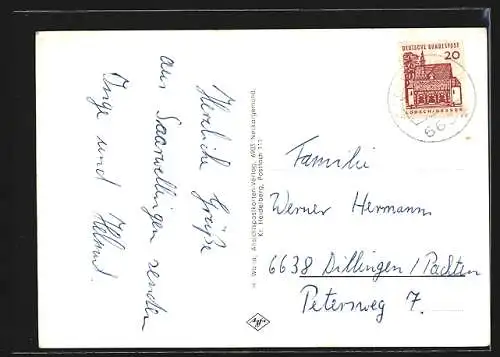 Herzliche Grüße
aus Saarwellingen senden
Inge und Helmut.
H. Wolf, Ansichtspostkarten-Verlag, 6903 Neckargemünd,
Kr. Heidelberg, Postfach 111
DEUTSCHE BUNDESPOST
20
LORSCH/HESSEN
663
Familie
Werner Hermann
6638 Dillingen/Pachten
Petersweg 7.